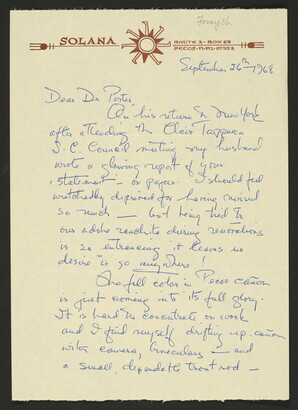 Forsyth
SOLANA
ROUTE 2 - BOX 65
PECOS - N.M. 87552
September 26th 1968
Dear Dr Porter,
On his return to New York
after attending the Clair Tappaan
S.C. Council meeting my husband
wrote a glowing report of your
statement - or paper. I should feel
wretchedly deprived for having missed
so much - but being tied to
our adobe ranchito during renovations
is so entrancing it leaves no
desire to go anywhere!
The fall color in Pecos cañon
is just coming into its full glory.
It is hard to concentrate on work
and I find myself drifting up-cañon
with camera, binoculars - and
a small, dependable trout rod -